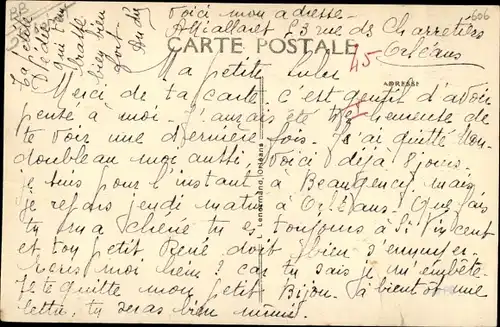 Voici mon adresse
23 rue des Charretiers
Orléans
CARTE POSTALE
45
ADRESSE
606
Ta petite
Dédée
qui t'embrasse
bien bien
fort
Ma petite
Merci de ta carte. C'est gentil d'avoir
pensé à moi. J'aurais été heureuse de
te voir une dernière fois. J'ai quitté
moi aussi, voici déjà 8 jours.
je suis pour l'instant à Beaugency mais
je repars jeudi matin à Orléans. Que fais
tu ma chérie tu es toujours à St Vincent
et ton petit René doit bien s'ennuyer.
moi hein? car tu sais je m'embête.
Je te quitte mon petit Bijou. à bientôt une
lettre, tu seras bien mimi.
L. Lenormand, Orléans